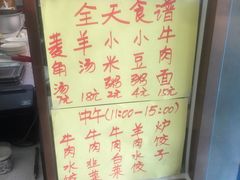 全天食谱
菱角汤 7元
羊汤 18元
小米粥 2元
小豆粥 4元
牛肉面 15元
中午(11:00-15:00)
牛肉水饺
牛肉韭菜
牛肉白菜
羊肉水饺
炉饺子